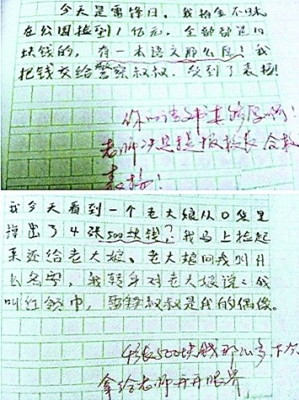 今天是雷锋日。我拾金不昧
在公园捡到1亿元,全部都是10
块钱的,有一本语文那么厚!我
把钱交给警察叔叔,受到了表扬!
你的语文书真够厚啊!
老师决定提报校长 全校
表扬!
我今天看到一个老大娘从口袋里
掉出了4张500块钱?我马上捡起
来还给老大娘。老大娘问我叫什
么名字,我转身对老大娘说:我
叫红领巾,雷锋叔叔是我的偶像。
4张500块钱那么多,下次
拿给老师开开眼界